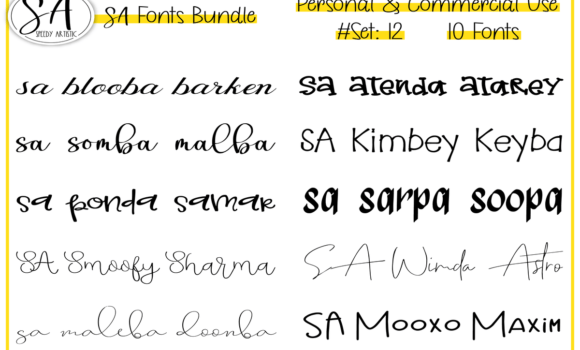 SA
SPEEDY ARTISTIC
SA Fonts Bundle
Personal & Commercial Use
#Set: 12 10 Fonts
sa blooba barken
sa atenda atarey
sa somba malba
SA Kimbey Keyba
sa ponda samar
sa sarpa soopa
SA Smoofy Sharma
SA Wimda Astro
sa maleba doonba
SA Mooxo Maxim